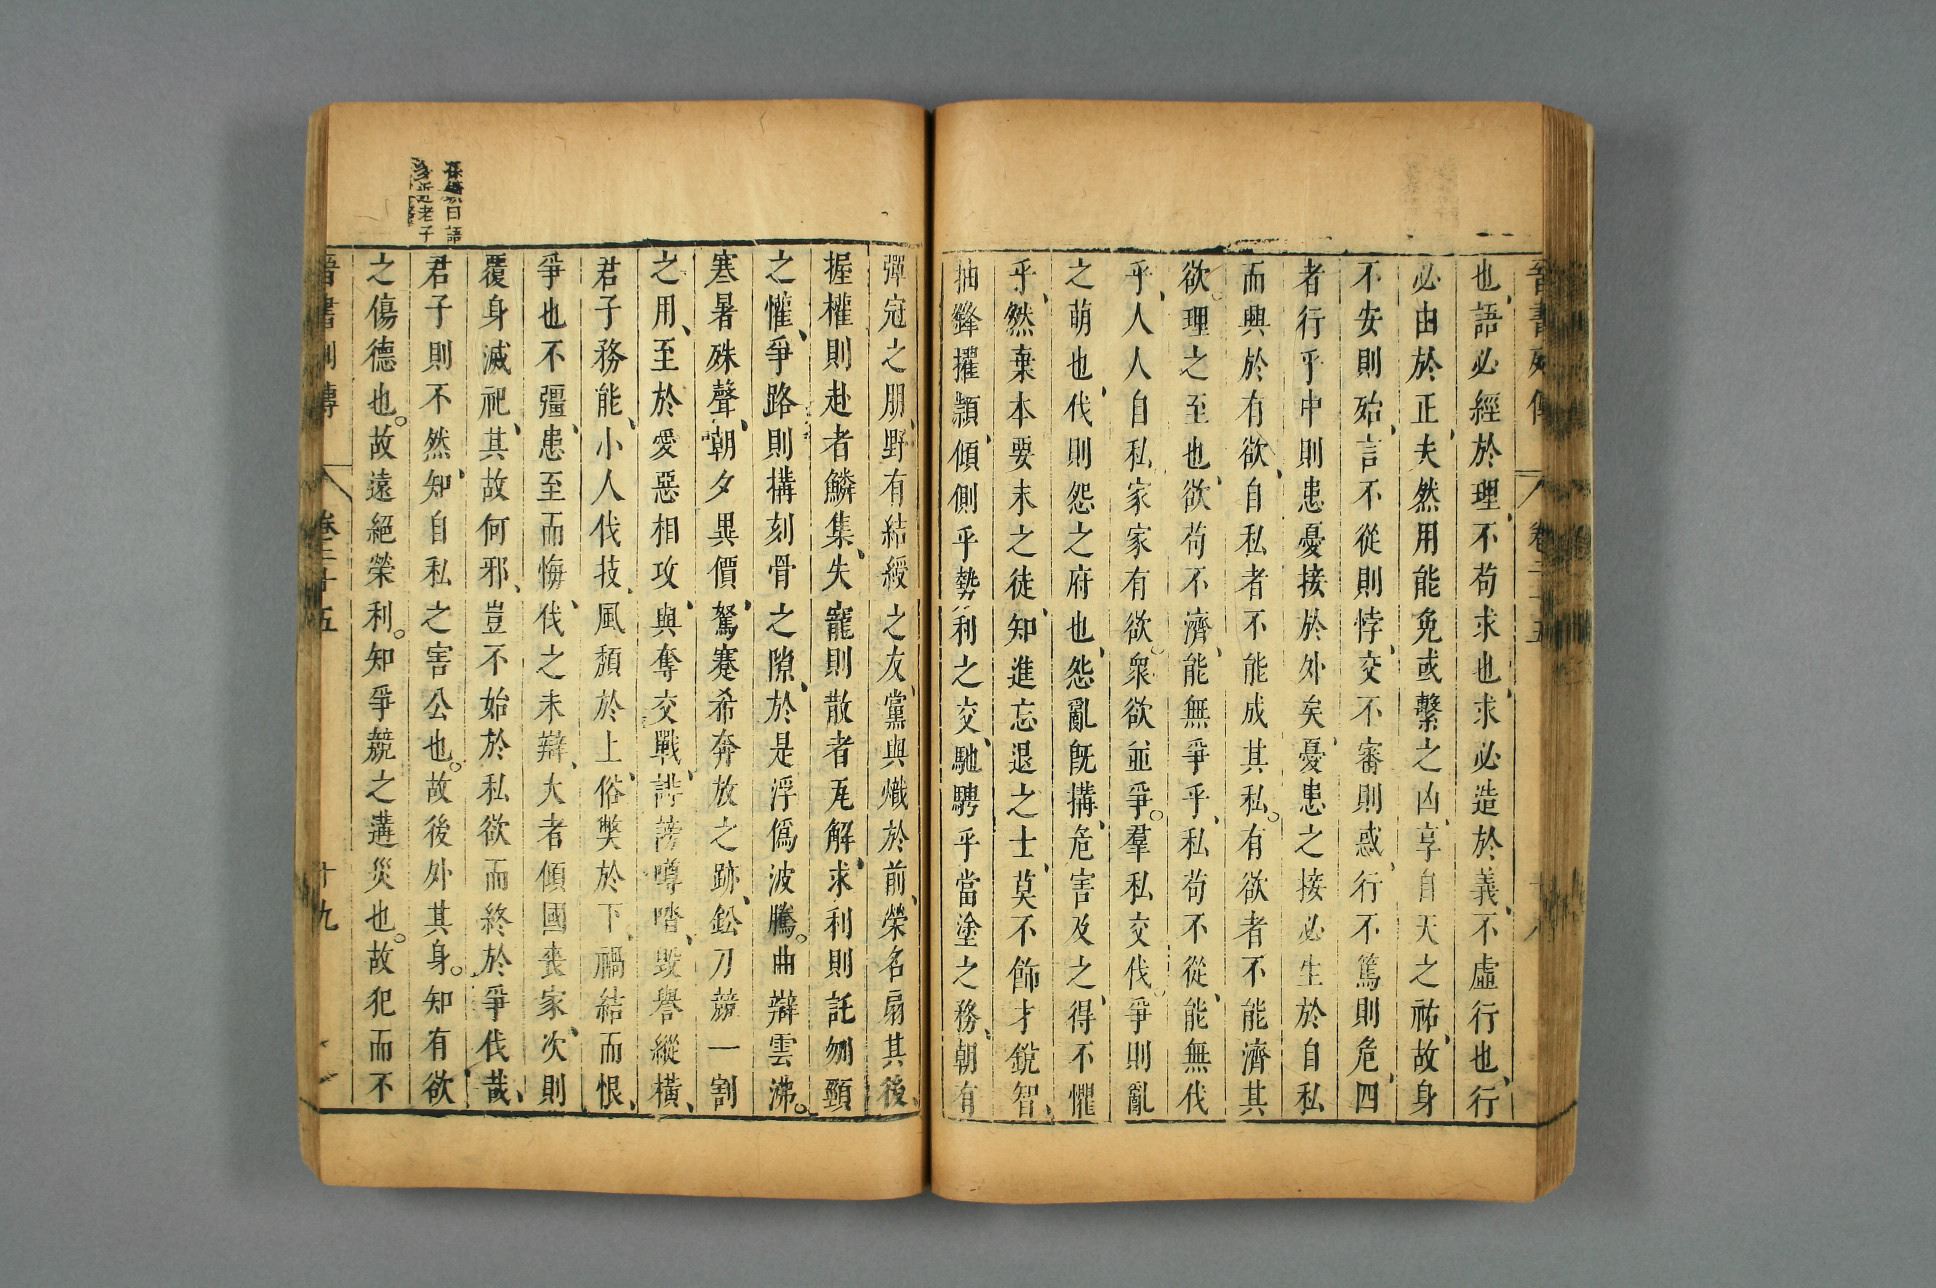 晉書列傳 卷二十五 十八
也語必經於理不苟求也求必造於義不虛行也行
必由於正夫然用能免或繫之凶享自天之祐故身
不安則殆言不從則悖交不審則惑行不篤則危四
者行乎中則患憂接於外矣憂患之接必生於自私
而興於有欲自私者不能成其私有欲者不能濟其
欲理之至也欲苟不濟能無爭乎私苟不從能無伐
乎人人自私家家有欲衆欲並爭羣私交伐爭則亂
之萌也伐則怨之府也怨亂旣搆危害及之得不懼
乎然棄本要末之徒知進忘退之士莫不飾才銳智
抽鋒擢穎傾側乎勢利之交馳騁乎當塗之務朝有
彈冠之朋野有結綬之友黨與熾於前榮名扇其後
握權則赴者鱗集失寵則散者瓦解求利則託刎頸
之懽爭路則搆刻骨之隙於是浮僞波騰曲辯雲沸
寒暑殊聲朝夕異價駑蹇希奔放之跡鉛刀競一割
之用至於愛惡相攻與奪交戰誹謗噂𠴲毀譽縱橫
君子務能小人伐技風頹於上俗獘於下禍結而恨
爭也不彊患至而悔伐之未辯大者傾國喪家次則
覆身滅祀其故何邪豈不始於私欲而終於爭伐哉
君子則不然知自私之害公也故後外其身知有欲
之傷德也故遠絕榮利知爭競之遘災也故犯而不
晉書列傳 卷三十五 十九
曰語
近老子